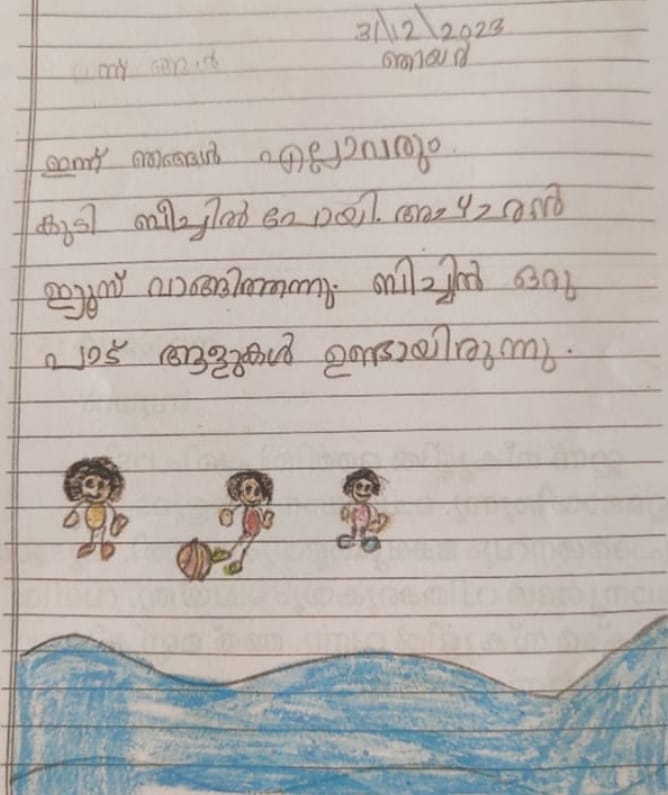 3/12/2023
ഞായർ
ഇന്ന് ഞങ്ങൾ എല്ലാവരും
കൂടി ബീച്ചിൽ പോയി.
ജ്യൂസ് വാങ്ങിത്തന്നു. ബിച്ചിൻ ഒരു
പാട് ആളുകൾ ഉണ്ടായിരുന്നു.